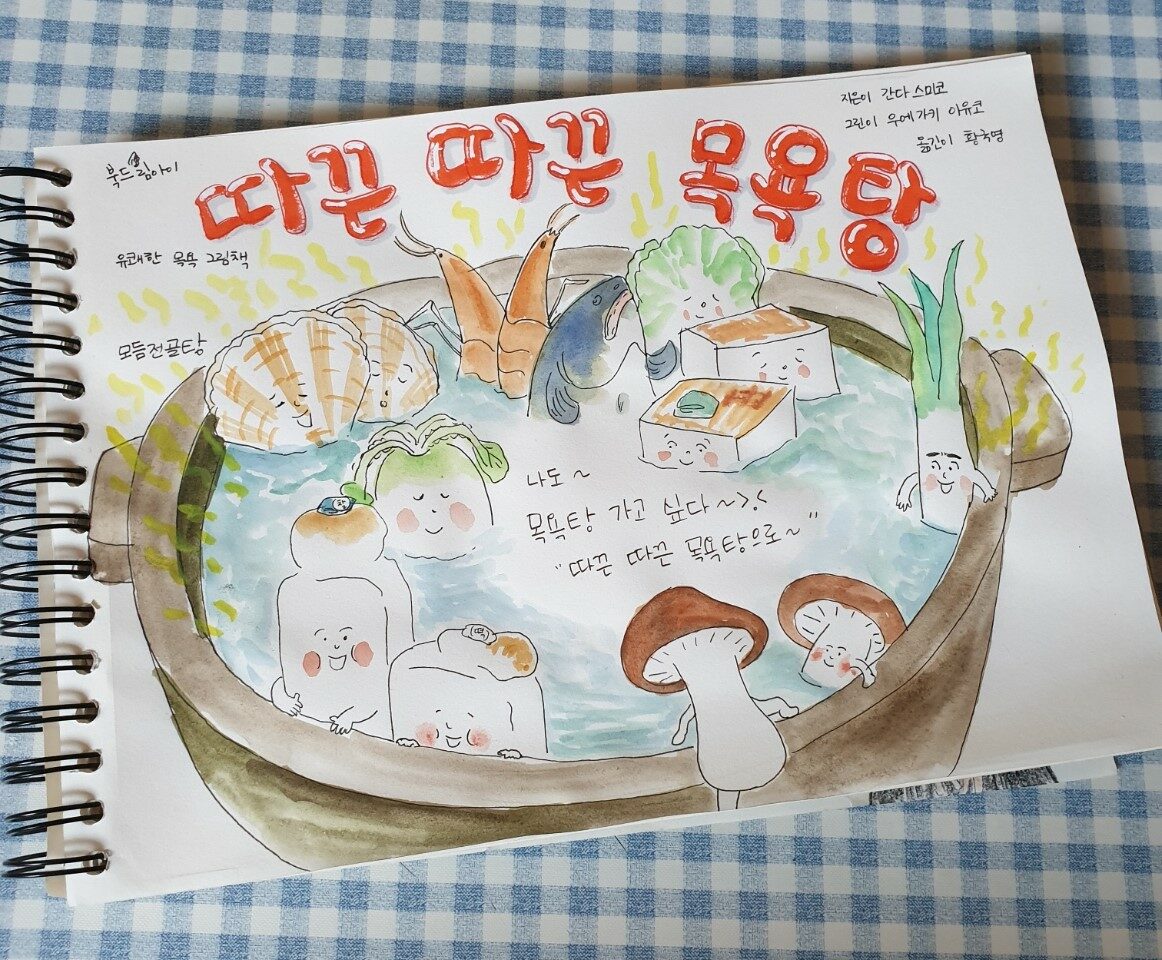 북드림아이
따끈 따끈 목욕탕
지은이 간다 스미코
그린이 우에가키 아유코
옮긴이 황국영
유쾌한 목욕 그림책
모듬전골탕
나도~
목욕탕 가고 싶다~>.<
"따끈 따끈 목욕탕으로~"
떡